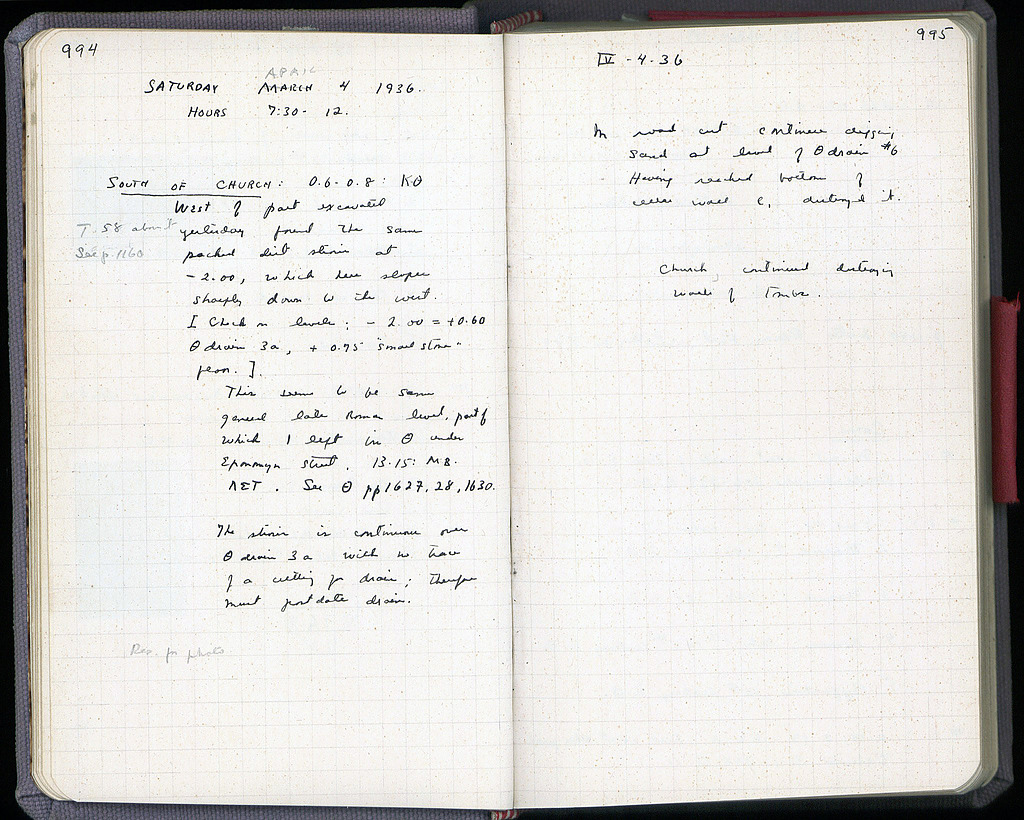 994
APRIL
SATURDAY MARCH 4 1936.
HOURS 7:30 - 12.
SOUTH OF CHURCH: 0.6-0.8: ΚΘ
West of part excavated
T. 58 about
yesterday found the same
See p. 1160
packed dirt strosis at
- 2.00, which here slopes
sharply down to the west.
I check on levels: - 2.00 = +0.60
Θ drain 3a, + 0.75 "small stone"
]
This seems to be same
general late Roman level, part of
which I left in Θ under
Eponymon street. 13.15: MB.
ΝΣΤ. See Θ pp 1627, 28, 1630.
The strosis is continuous over
Θ drain 3a with no trace
of a cutting for drain; therefore
must postdate drain.
Rep. for photo
995
IV - 4 - 36
In road cut continue digging
sand at level of Θ drain #6
Having reached bottom of
cellar wall C, destroyed it.
Church, continued destroying
walls of Tombs.